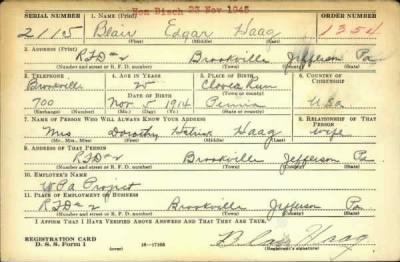 Hon Disch 23 Nov 1945
SERIAL NUMBER 1. NAME (Print) ORDER NUMBER
2115 Blair Edgar Haag 1354
(First) (Middle) (Last)
2. ADDRESS (Print)
RFD #2 Brookville Jefferson Pa
(Number and street or R. F. D. number) (Town) (County) (State)
3. TELEPHONE 4. AGE IN YEARS 5. PLACE OF BIRTH 6. COUNTRY OF CITIZENSHIP
Brookville 25 Run
DATE OF BIRTH (Town or county)
700 Nov 5 1914 Penna USA
(Exchange) (Number) (Mo.) (Day) (Yr.) (State or country)
7. NAME OF PERSON WHO WILL ALWAYS KNOW YOUR ADDRESS 8. RELATIONSHIP OF THAT PERSON
Mrs Dorothy Haag wife
(Mr., Mrs., Miss) (First) (Middle) (Last)
9. ADDRESS OF THAT PERSON
RFD #2 Brookville Jefferson Pa
(Number and street or R. F. D. number) (Town) (County) (State)
10. EMPLOYER'S NAME
W.P.a Project
11. PLACE OF EMPLOYMENT OR BUSINESS
RFD #2 Brookville Jefferson Pa
(Number and street or R. F. D. number) (Town) (County) (State)
I AFFIRM THAT I HAVE VERIFIED ABOVE ANSWERS AND THAT THEY ARE TRUE.
REGISTRATION CARD
D. S. S. Form 1 (over) 16—17105 Blair Haag
(Registrant's signature)